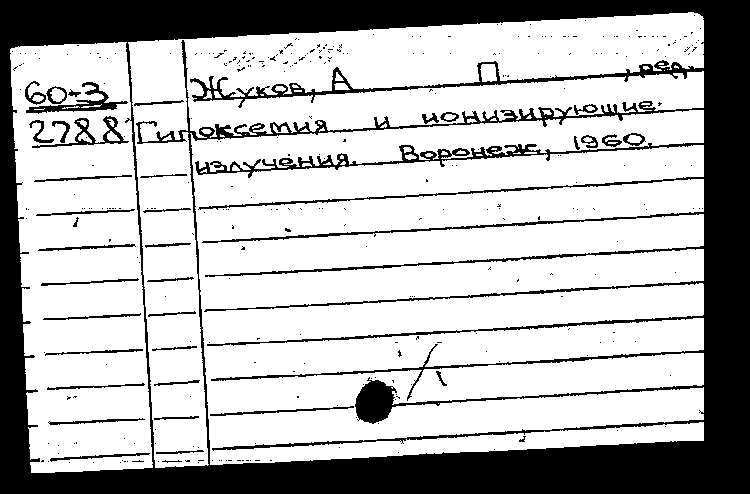 60-3 Жуков, А П , ред.
2788 Гипоксемия и ионизирующие
излучения. Воронеж, 1960.